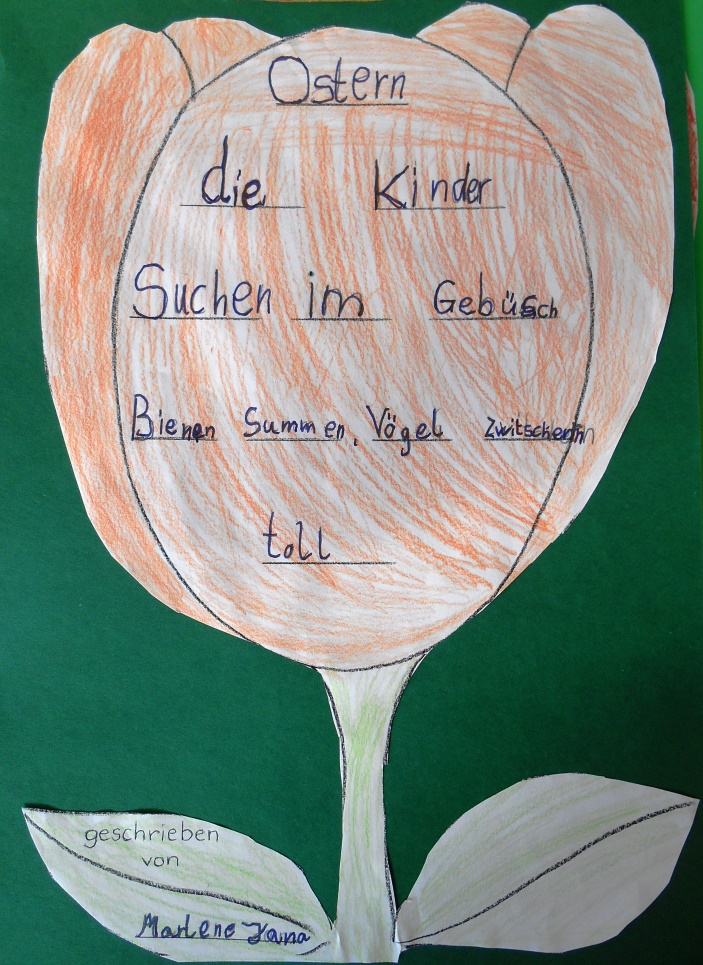 Ostern
die Kinder
Suchen im Gebüsch
Bienen Summen, Vögel Zwitschern
toll
geschrieben
von
Marlene Yana